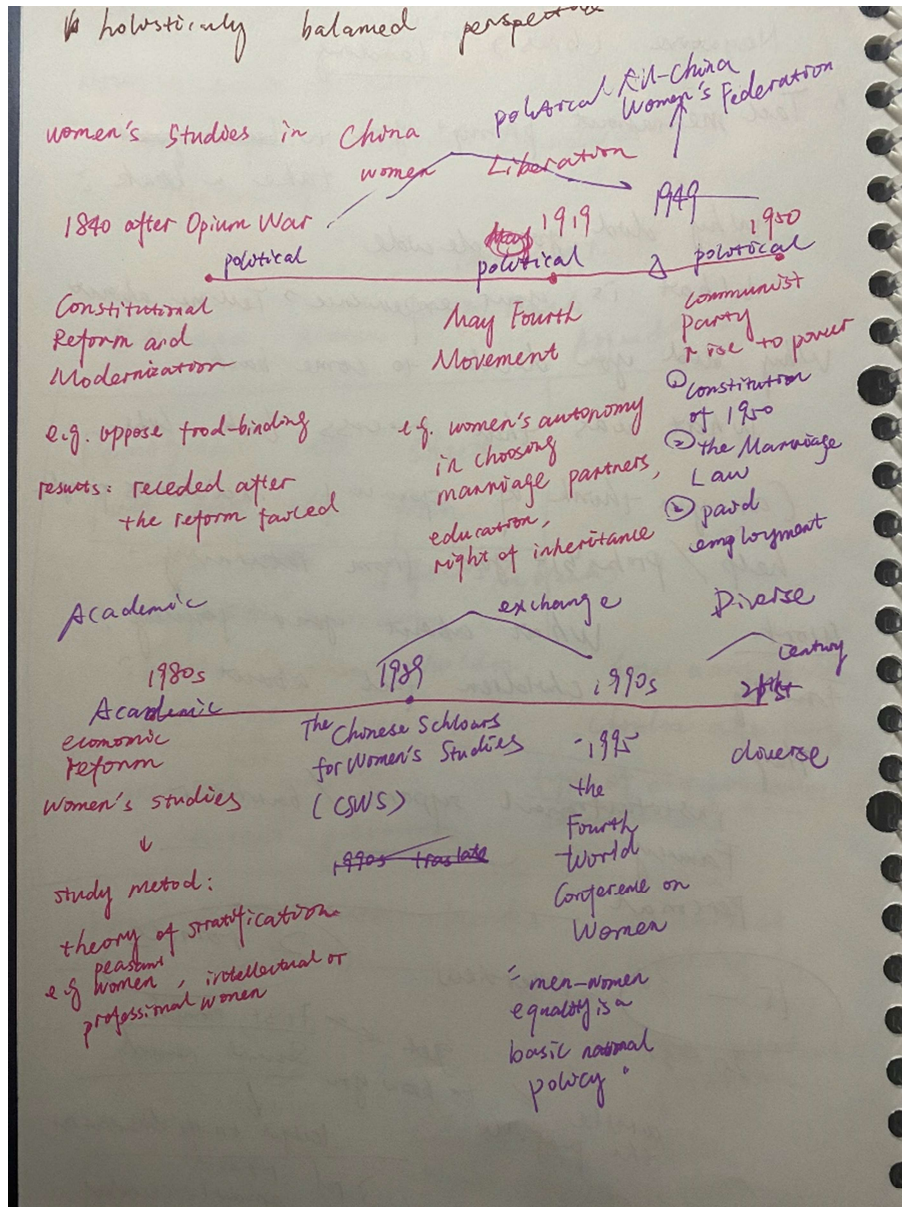 holostically balamed perspective
women's Studies in China
political All-China
Women's Federation
women Liberation
1840 after Opium War
1919
1949
1950
political
political
political
Constitutional
Reform and
Modernization
e.g. oppose food-binding
results: receded after
the reform failed
May Fourth
Movement
e.g. women's autonomy
in choosing
marriage partners,
education,
right of inheritance
Communist
Party
rise to power
① constitution
of 1950
② the Marriage
Law
③ paid
employment
Academic
exchange
Diverse
1980s
Academic
economic
reform
women's studies
↓
study metod:
theory of stratification
e.g peasant women, intellectual or
professional women
1989
The Chinese Schloars
for Women's Studies
(CSWS)
1990s traslate
1990s
- 1995
the
Fourth
World
Conference on
Women
"men-women
equality is a
basic national
policy"
century
21st
diverse